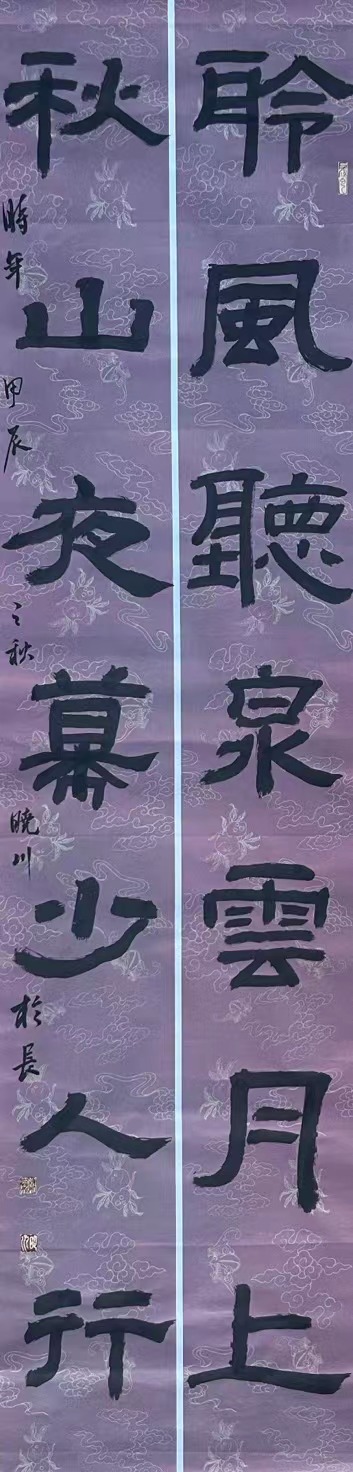 聆風聽泉雲月上
秋山夜幕少人行
時年甲辰之秋曉川於長